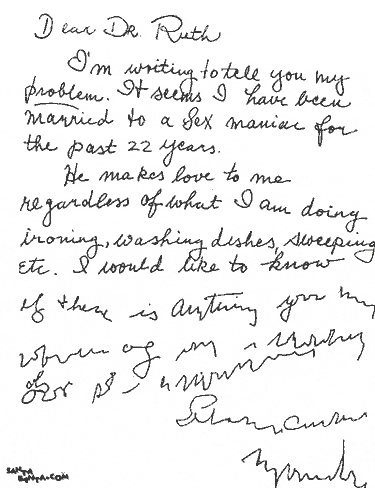 Dear Dr. Ruth
I'm writing to tell you my
problem. It seems I have been
married to a sex maniac for
the past 22 years.
He makes love to me
regardless of what I am doing
ironing, washing dishes, sweeping
etc. I would like to know
if there is anything you may